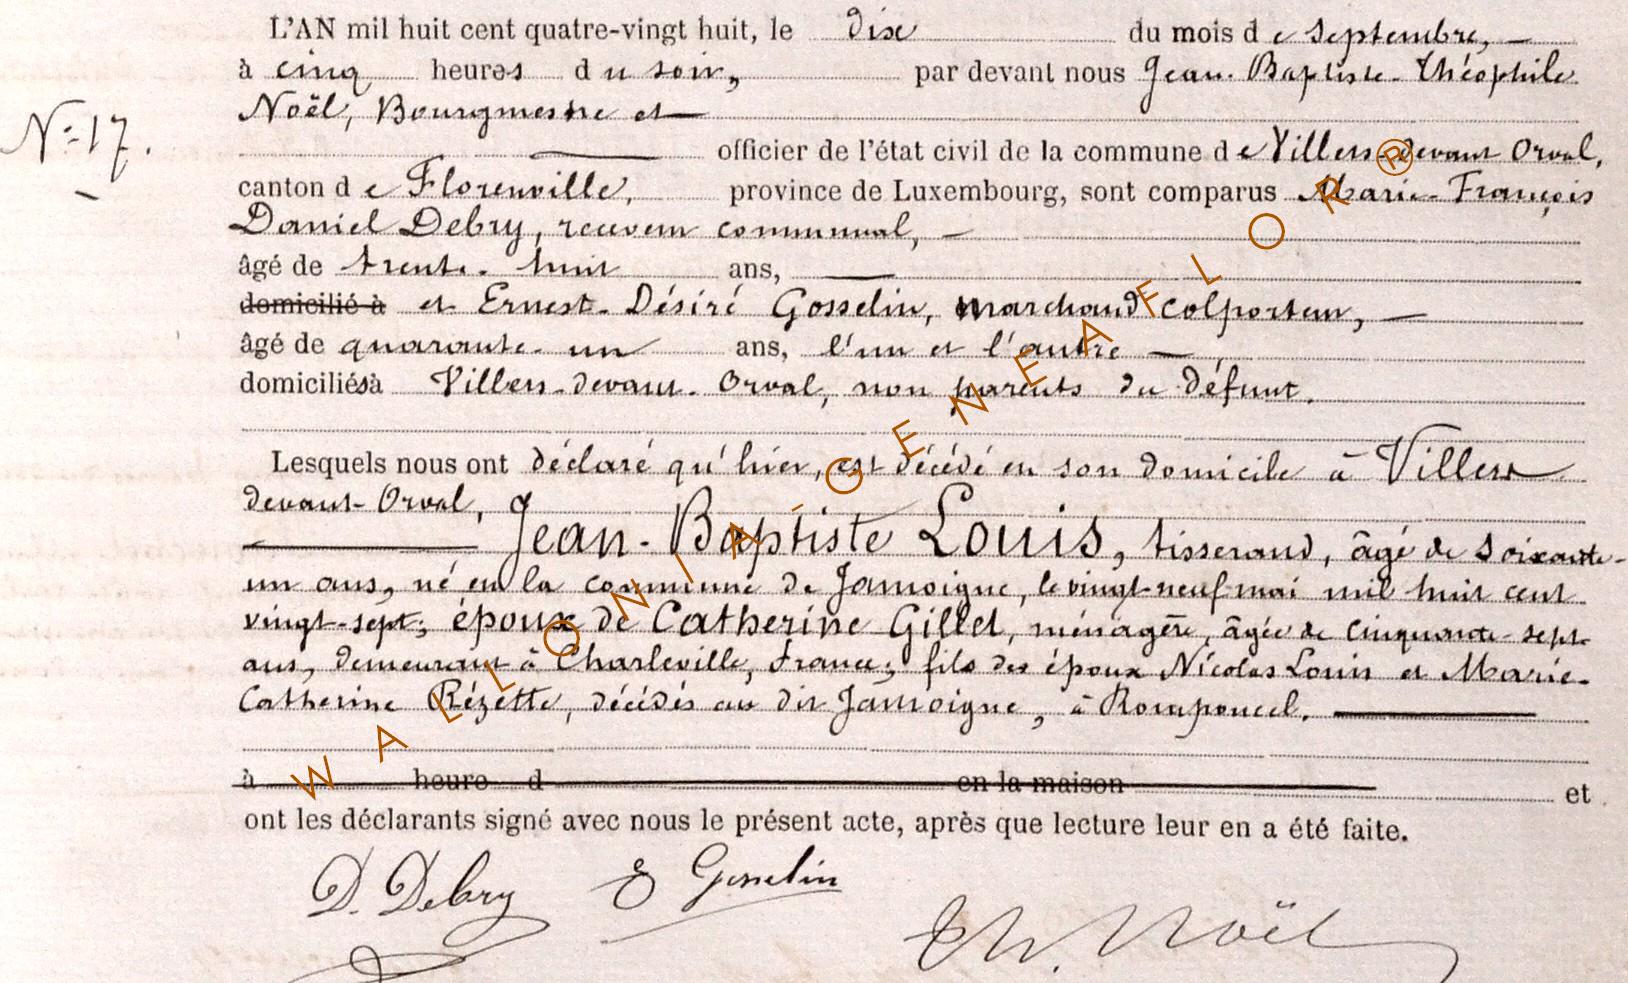 L'AN mil huit cent quatre-vingt huit, le dix du mois de septembre,
à cinq heures du soir, par devant nous Jean-Baptiste-Théophile
Noël, Bourgmestre et
N° 17.
officier de l'état civil de la commune de Villers-devant Orval,
canton de Florenville, province de Luxembourg, sont comparus Marie-François
Daniel Debry, receveur communal,
âgé de trente-huit ans,
domicilié à et Ernest-Désiré Gosselin, marchand colporteur,
âgé de quarante-un ans, l'un et l'autre
domiciliés à Villers-devant-Orval, non parents du défunt.
Lesquels nous ont déclaré qu'hier, est décédé en son domicile à Villers
devant-Orval,
Jean-Baptiste Louis, tisserand, âgé de soixante-
un ans, né en la commune de Jamoigne, le vingt-neuf mai mil huit cent
vingt-sept; époux de Catherine Gillet, ménagère, âgée de cinquante-sept
ans, demeurant à Charleville, France; fils des époux Nicolas Louis et Marie-
Catherine Rézette, décédés au dit Jamoigne, à Romponcel.
à heure d en la maison et
ont les déclarants signé avec nous le présent acte, après que lecture leur en a été faite.
D. Debry E Gosselin
Th. Noël
WALLONIA-GENEAFLOR®